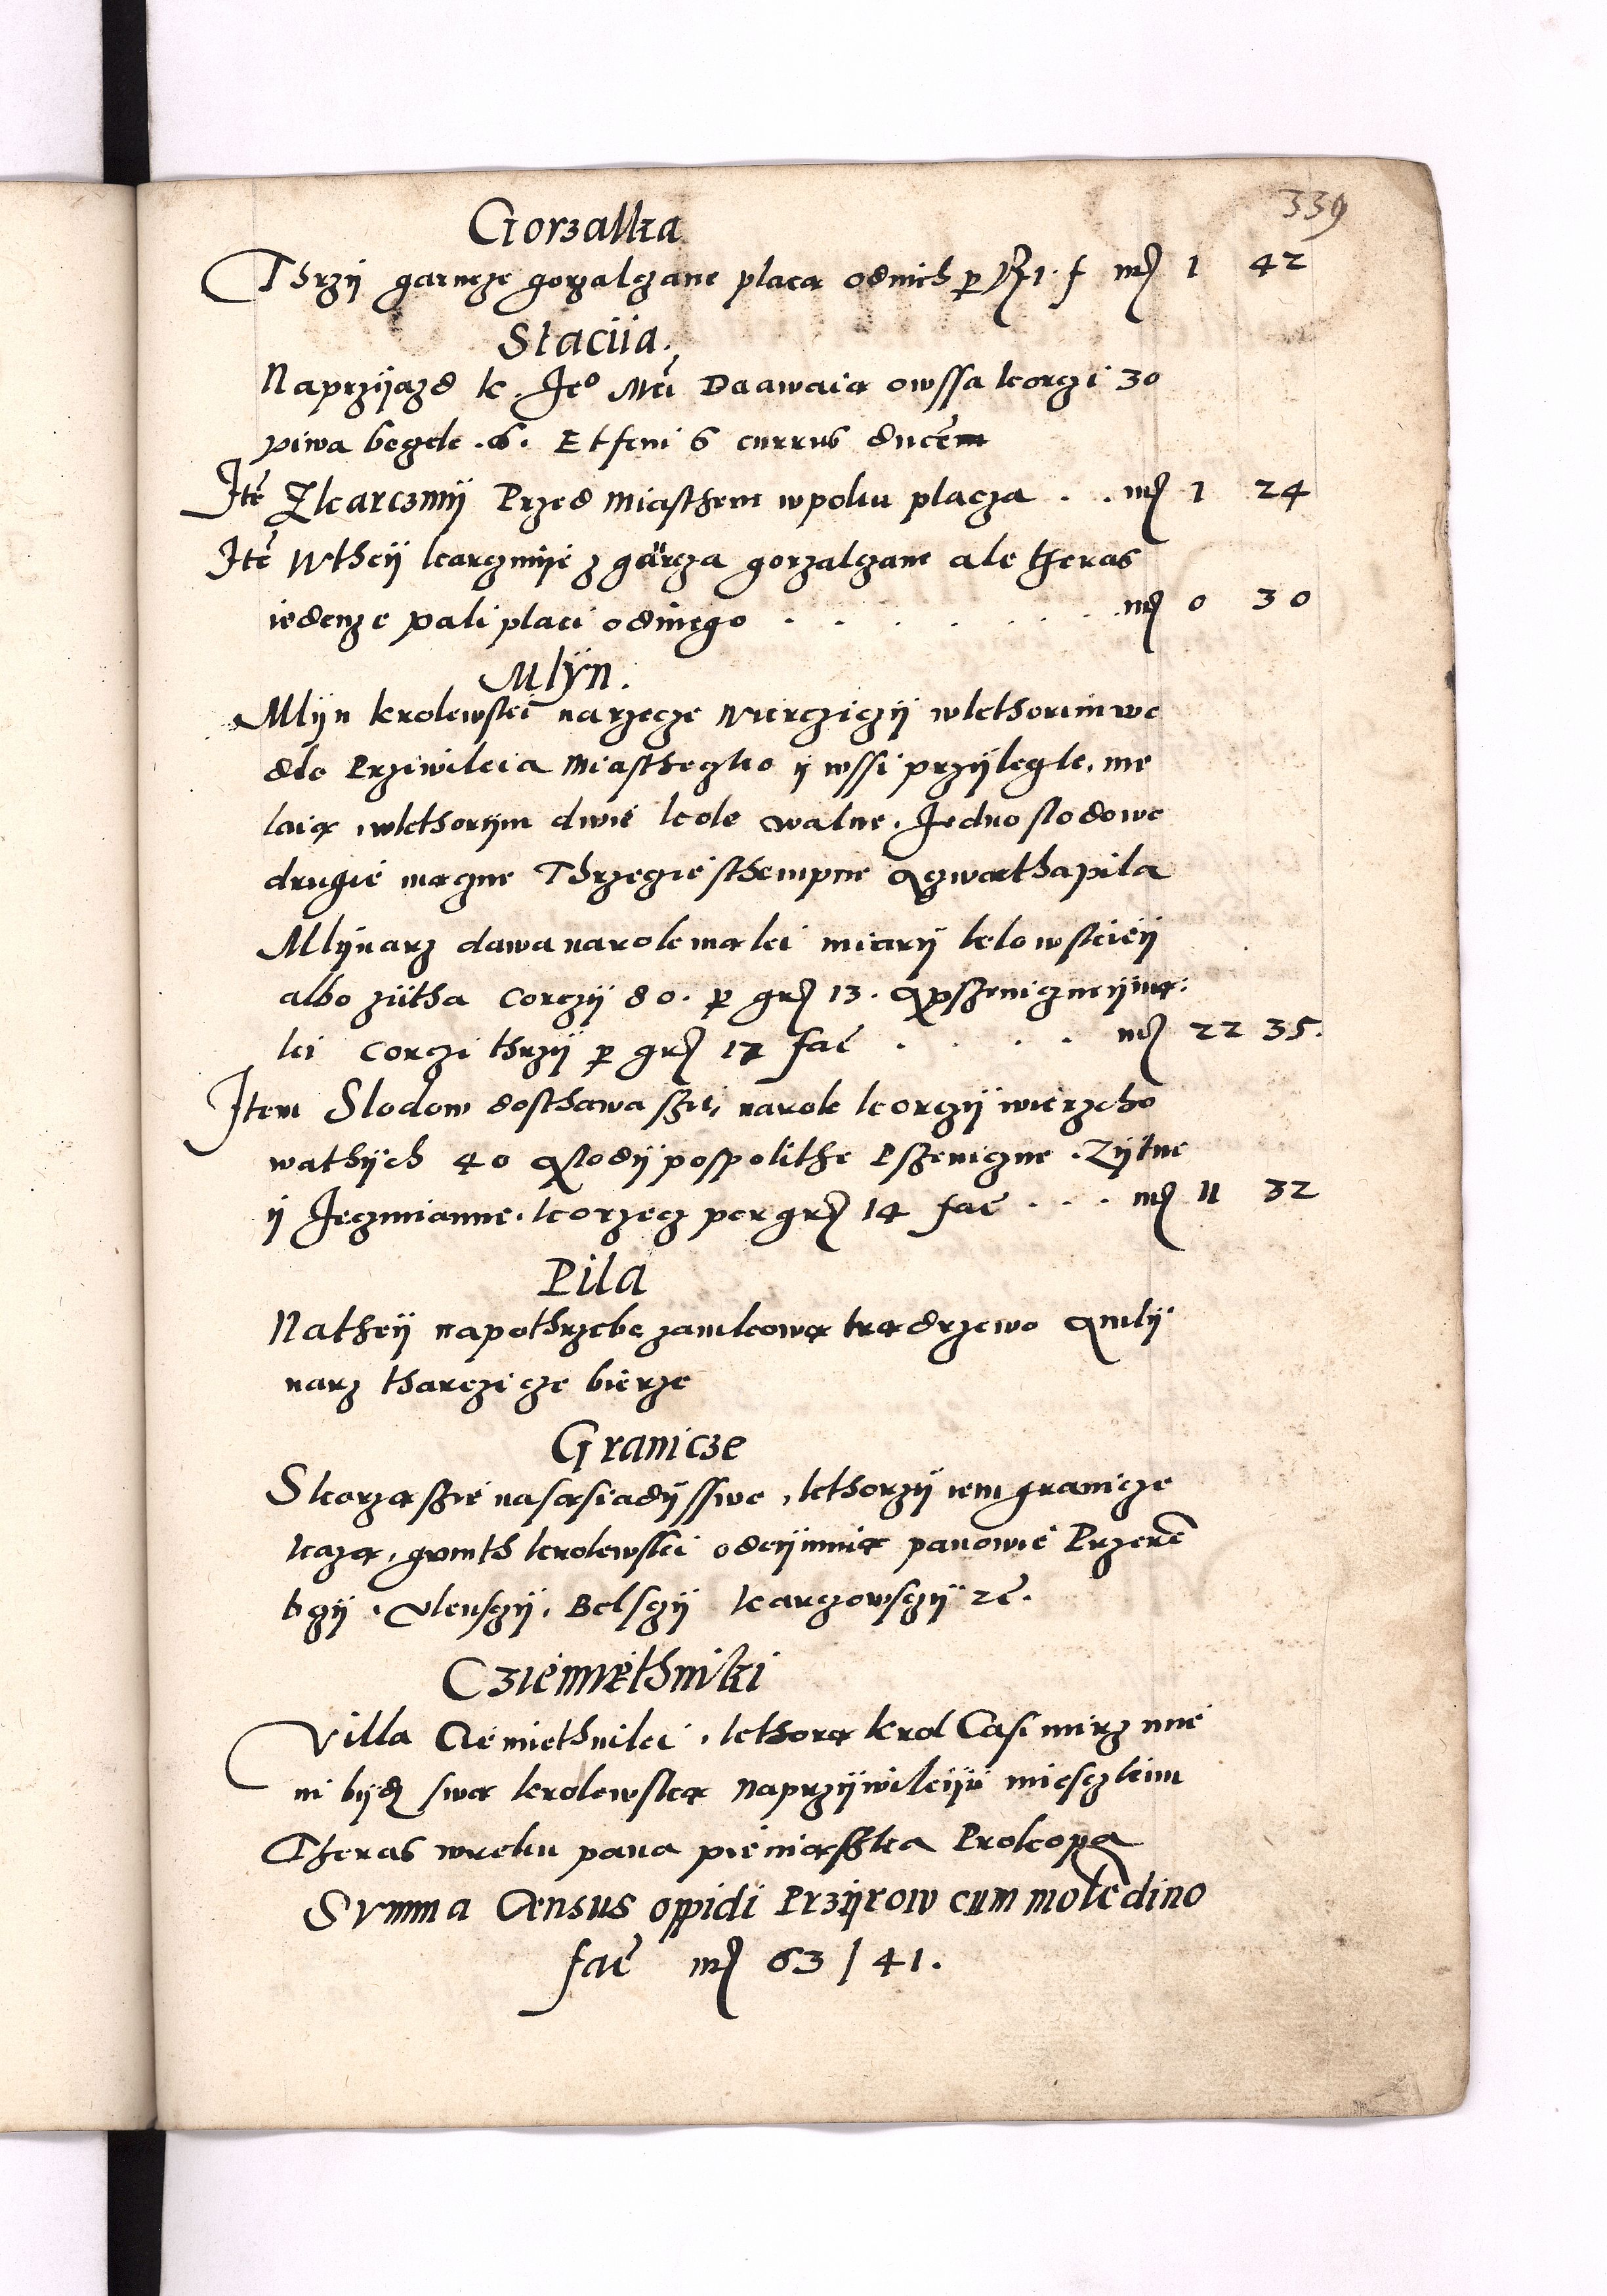 339
Gorzalka
Thrzÿ garncze gorzalczane placą odnich p fl 1. f mr 1 42
Staciia.
Naprzÿazd k. Jeº Mći Daawaią owssa korczi 30
piwa beczek .6. Et feni 6 currus ducēm
Itē Zkarczmÿ Przed Miasthem wpoliu placza . . mr 1 24
Itē Wtheÿ karczmÿe z garcza gorzalczane ale theras
iedenze pali placi odniego . . . . . . mr 0 30
Mlÿn.
Mlÿn krolewski narzecze Wiercziczÿ wkthorim we
dle Przivileia Miastheczko ÿ wssi przÿlegle, me
laią, wkthorÿm dwie kole walne. Jedno slodowe
drugie mączne Thrzecie sthempne ączwarthapila
Mlÿnarz dawa narok mąki miarÿ lelowskieÿ
albo zÿtha corczÿ 80. p gr 13. ąpszeniczneÿ mą:
ki corczi thrzÿ p gr 17 faē . . . . mr 22 35.
Item Slodow dosthawa szie, narok korczÿ wierzcho
wathÿch 40 ąslodÿ pospolithe Pszeniczne. Zÿtne
ÿ Jeczmianne. korzecz per gr 14 faē . . . mr 11 32
Pila
Natheÿ napothrzebe zamkową trą drzewo ąmlÿ
narz tharczicze bierze
Granicze
Skorzą szie nasąsiadÿ sswe, kthorzÿ iem granicze
każą, grunth krolewski odeÿmuią panowie Przerē
bczÿ, Ulensczÿ, Belsczÿ karczowsczÿ rē.
Cziemiethniki
Villa Ciemiethniki, kthorą krol Casimirz mie
ni bÿdz swą krolewską naprzÿwileiÿu miesczkim
Theras wreku pana pieniąsska Prokopa
Summa Census oppidi Przÿrow cum molēdino
faē mr 63 / 41.